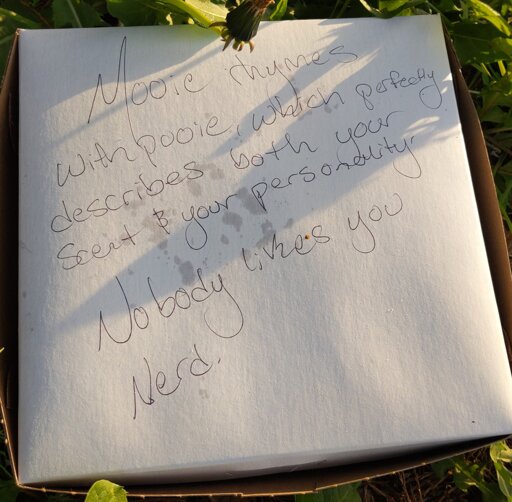 Mooie rhymes
with pooie, which perfectly
describes both your
scent & your personality
Nobody likes you
Nerd.